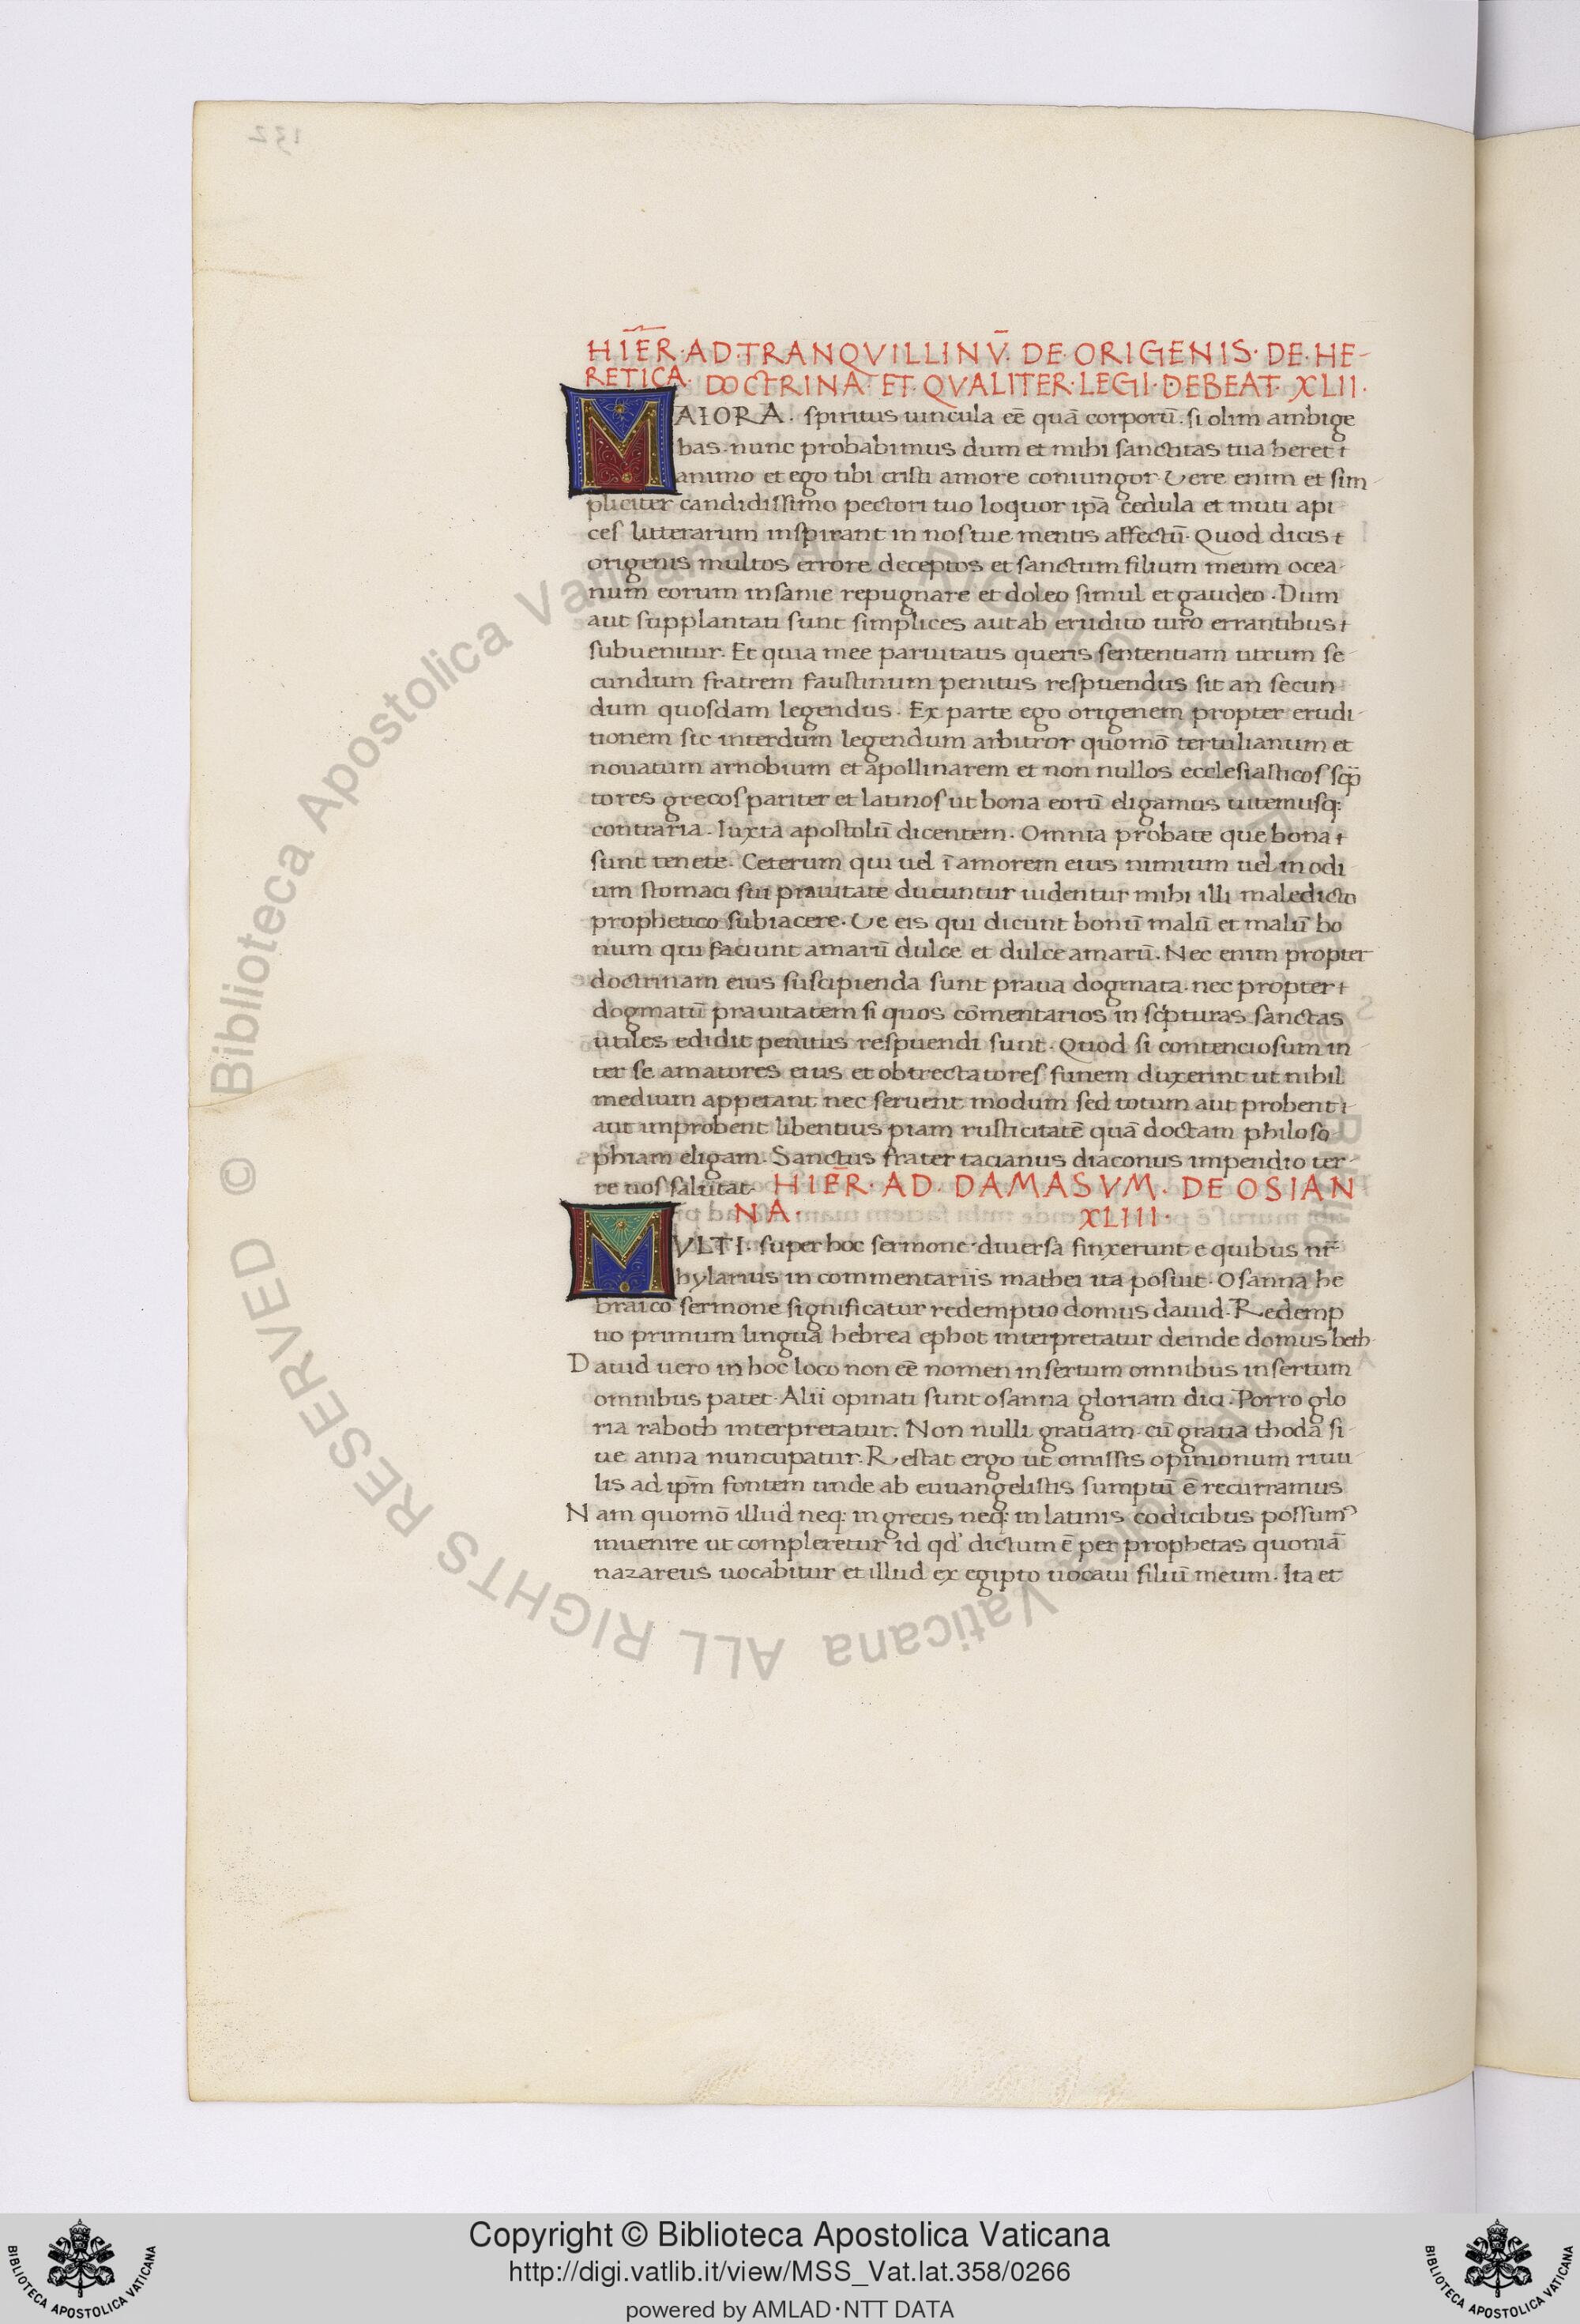 132
HIER̄·AD·TRANQVILLINV̄·DE·ORIGENIS·DE·HE-
RETICA·DOCTRINA·ET·QVALITER·LEGI·DEBEAT·XLII·
MAIORA· spiritus uincula eē quā corporū. si olim ambige
bas. nunc probabimus dum et mihi sanctitas tua heret
animo et ego tibi cristi amore coniungor. Vere enim et sim-
pliciter candidissimo pectori tuo loquor ipā cedula et muti api
ces litterarum inspirant in nos tue mentis affectū. Quod dicis
origenis multos errore deceptos et sanctum filium meum ocea
num eorum insanie repugnare et doleo simul et gaudeo. Dum
aut supplantati sunt simplices aut ab erudito uiro errantibus
subuenitur. Et quia mee paruitatis queris sententiam utrum se
cundum fratrem faustinum penitus respuendus sit an secun
dum quosdam legendus. Ex parte ego origenem propter erudi-
tionem sic interdum legendum arbitror quomō tertulianum et
nouatum arnobium et apollinarem et non nullos ecclesiasticos scp̄
tores grecos pariter et latinos ut bona eorū eligamus uitemusq:
contraria. Iuxta apostolū dicentem. Omnia probate que bona
sunt tenete. Ceterum qui uel ī amorem eius nimium uel in odi
um stomaci sui prauitate ducuntur uidentur mihi illi maledicto
prophetico subiacere. Ve eis qui dicunt bonū malū et malū bo
num qui faciunt amarū dulce et dulce amarū. Nec enim propter
doctrinam eius suscipienda sunt praua dogmata. nec propter
dogmatū prauitatem si quos cōmentarios in scp̄turas sanctas
utiles edidit penitus respuendi sunt. Quod si contenciosum in
ter se amatores eius et obtrectatores funem duxerint ut nihil
medium appetant nec seruent modum sed totum aut probent
aut improbent libentius piam rusticitatē quā doctam philoso
phiam eligam. Sanctus frater tacianus diaconus impendio ter-
re uos salutat. HIER̄·AD·DAMASVM·DE OSIAN
NA· XLIII·
MVLTI· super hoc sermone diuersa finxerunt e quibus nr̄
hylarius in commentariis mathei ita posuit. Osanna he
braico sermone significatur redemptio domus dauid. Redemp
tio primum lingua hebrea ephot interpretatur deinde domus beth
Dauid uero in hoc loco non eē nomen insertum omnibus insertum
omnibus patet. Alii opinati sunt osanna gloriam dici. Porro glo
ria raboth interpretatur. Non nulli gratiam. cū gratia thoda si
ue anna nuncupatur. Restat ergo ut omissis opinionum riuu
lis ad ipm̄ fontem unde ab euuangelistis sumptū ē recurramus
Nam quomō illud neq: in grecis neq: in latinis codicibus possum⁹
inuenire ut compleretur id qd' dictum ē per prophetas quoniā
nazareus uocabitur et illud ex egipto uocaui filiū meum. Ita et
© Biblioteca Apostolica Vaticana ALL RIGHTS RESERVED
© Biblioteca Apostolica Vaticana ALL RIGHTS RESERVED
Copyright © Biblioteca Apostolica Vaticana
http://digi.vatlib.it/view/MSS_Vat.lat.358/0266
powered by AMLAD·NTT DATA
BIBLIOTECA APOSTOLICA VATICANA
BIBLIOTECA APOSTOLICA VATICANA